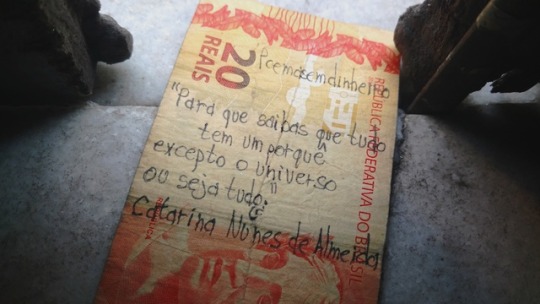 20
REAIS
REPÚBLICA FEDERATIVA DO BRASIL
Poemasemdinheiro
"Para que saibas que tudo
tem um porquê
excepto o universo
ou seja tudo."
Catarina Nunes de Almeida